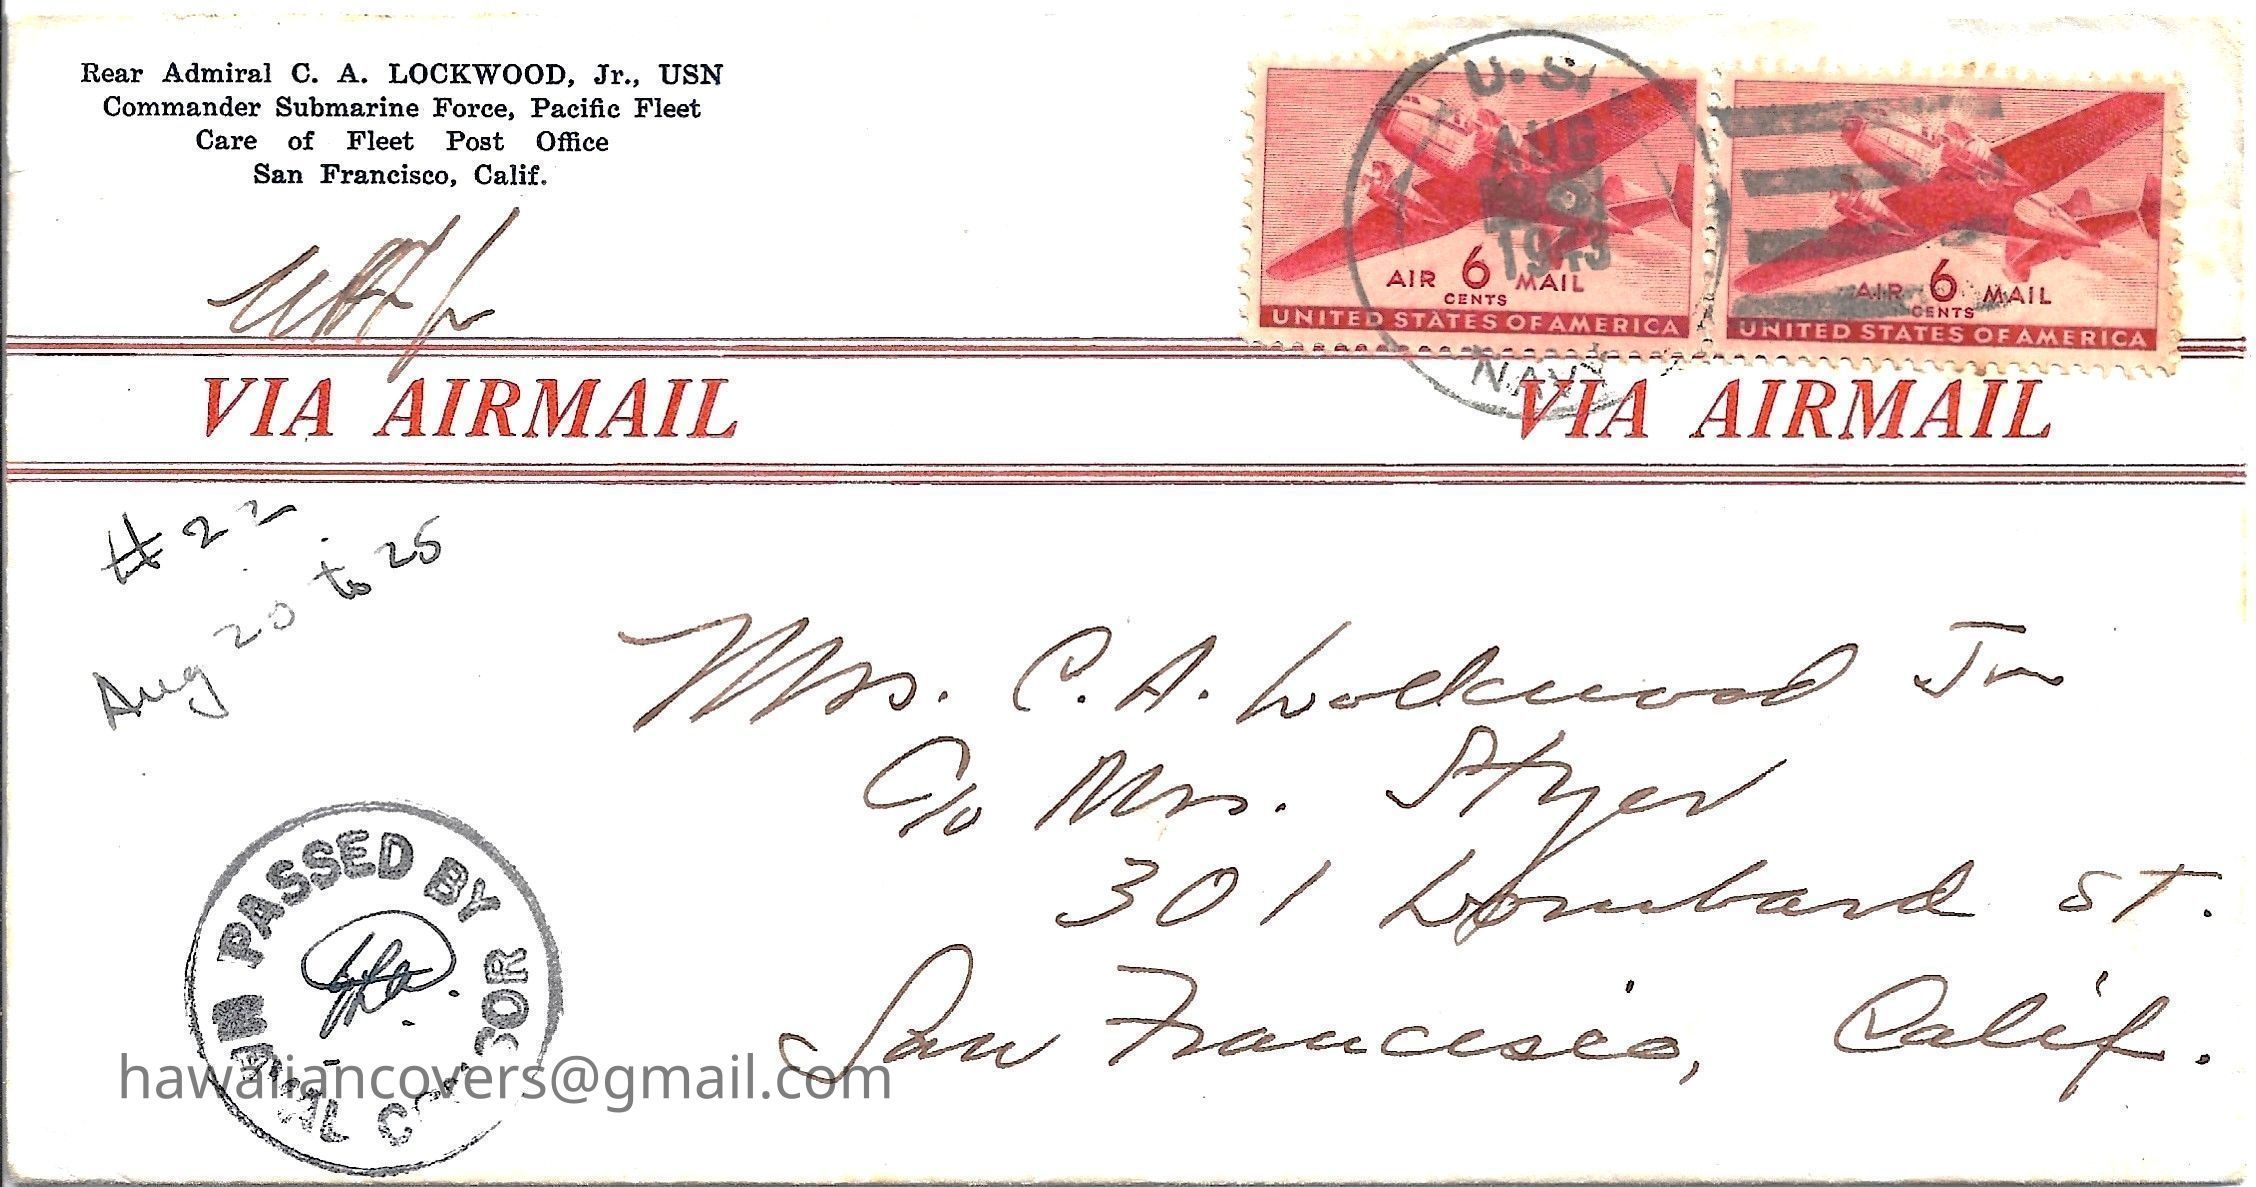 Rear Admiral C. A. LOCKWOOD, Jr., USN
Commander Submarine Force, Pacific Fleet
Care of Fleet Post Office
San Francisco, Calif.
U.S.
AUG
1943
NAVY
AIR 6 MAIL
CENTS
UNITED STATES OF AMERICA
AIR 6 MAIL
CENTS
UNITED STATES OF AMERICA
VIA AIRMAIL VIA AIRMAIL
#22
Aug 20 to 25
Mrs. C. A. Lockwood Jr
C/o Mrs. Styer
301 Lombard St.
San Francisco, Calif.
PASSED BY
hawaiiancovers@gmail.com